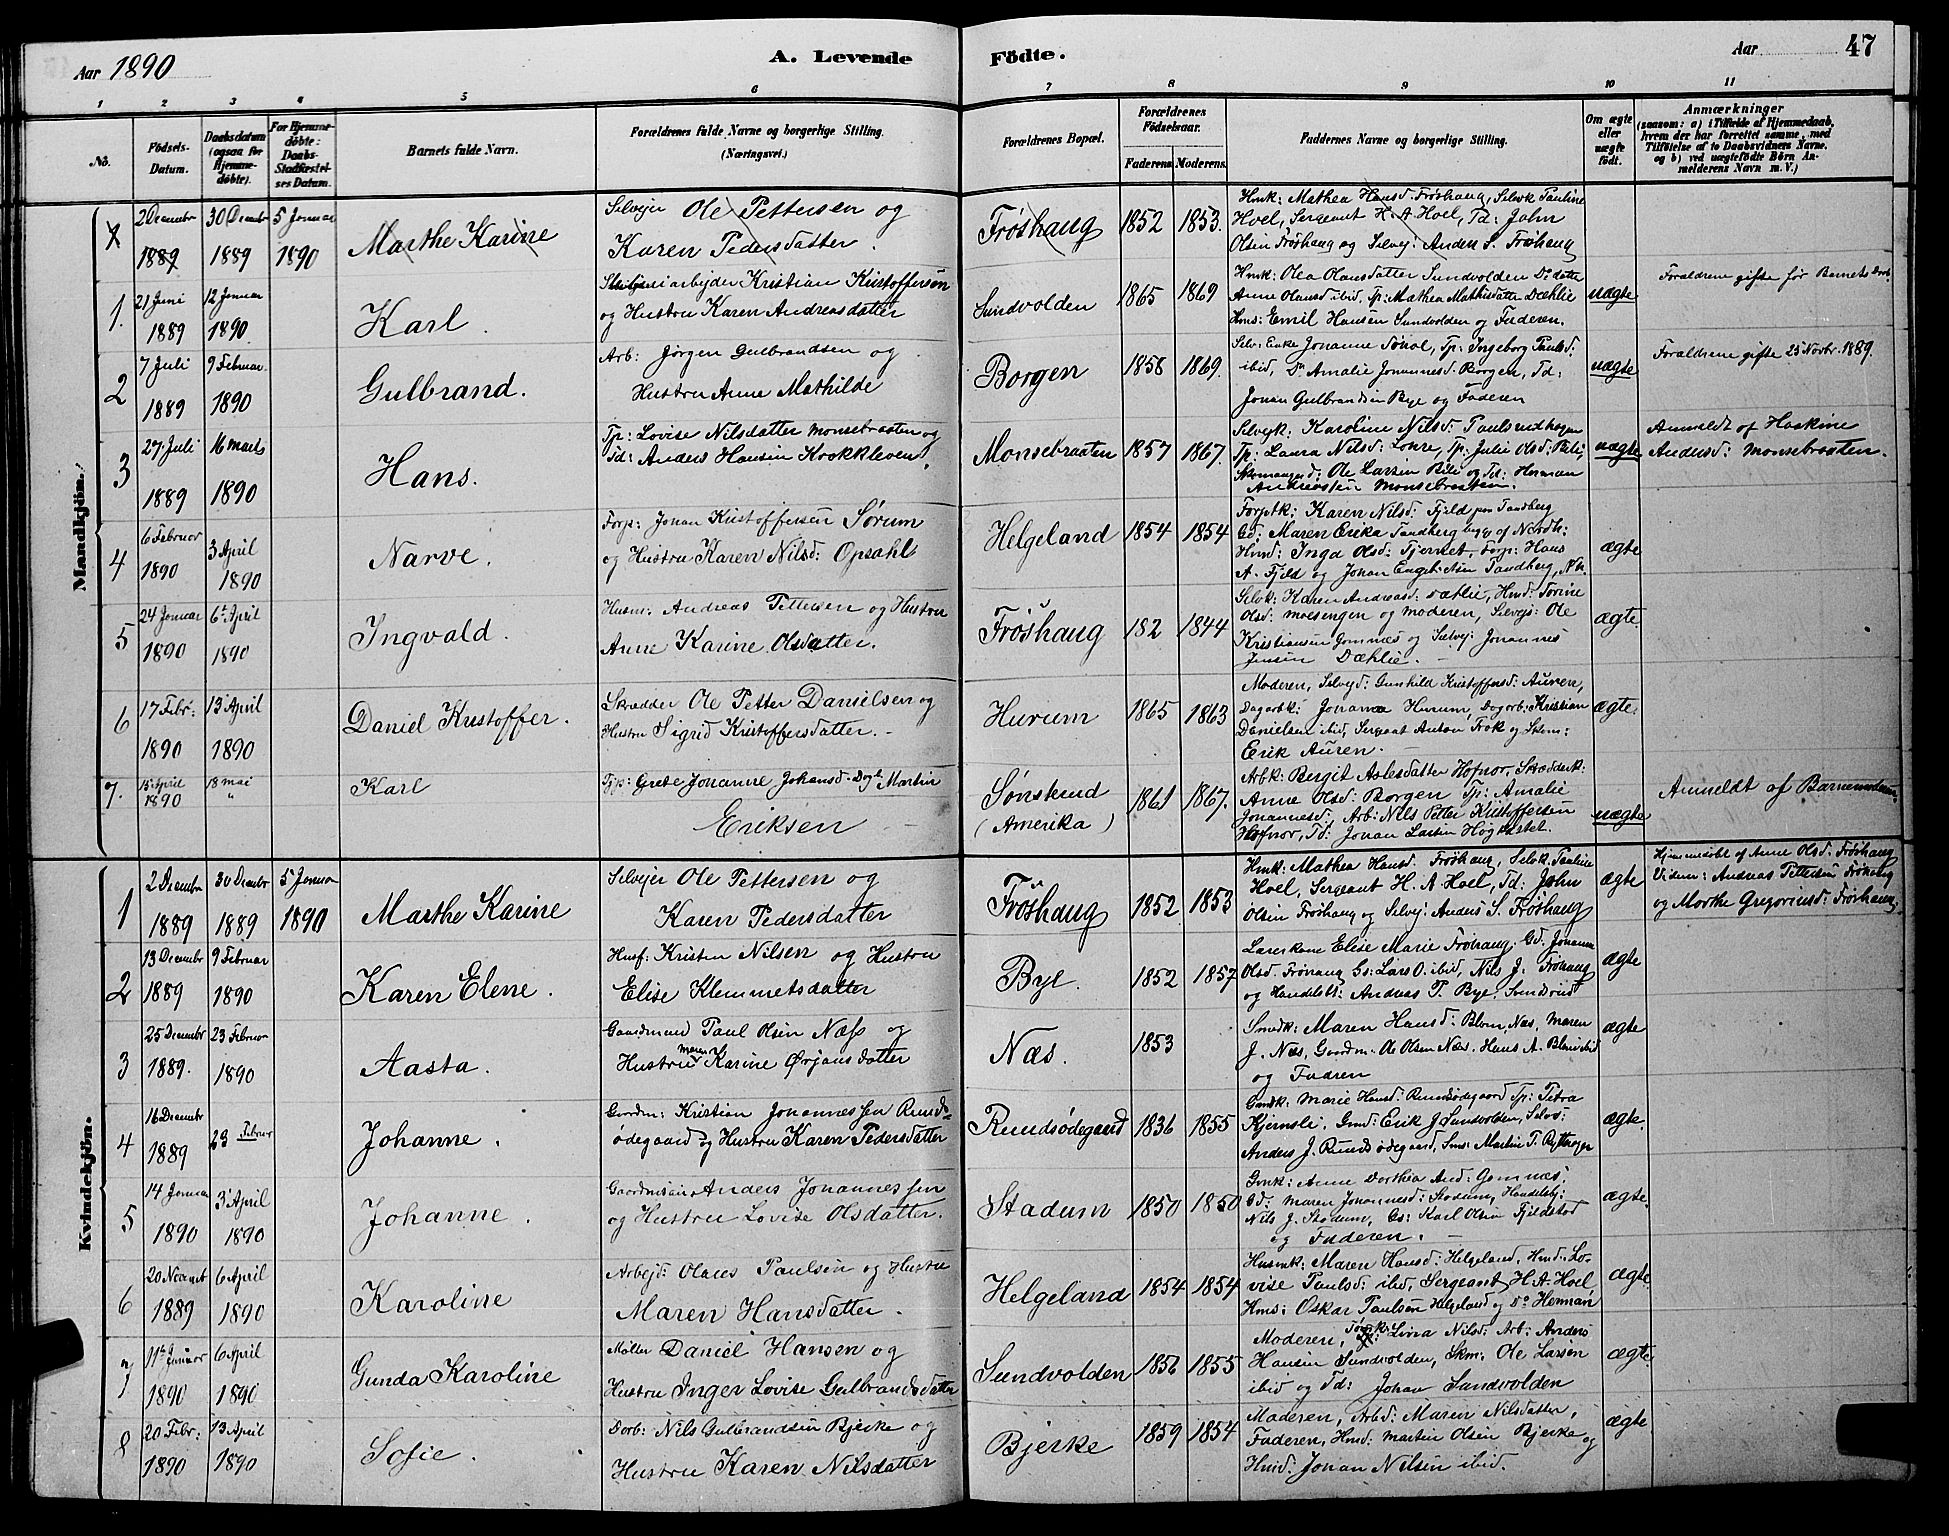 Aar 1890
A. Levende Födte.
Aar 47
1 2 3 4 5 6 7 8 9 10 11
No.
Födsels-Datum.
Daabsdatum (ogsaa for Hjemmedöbte).
For Hjemmedöbte: Daabs-Stadfæstelses Datum.
Barnets fulde Navn.
Forældrenes fulde Navne og borgerlige Stilling. (Næringsvei.)
Forældrenes Bopæl.
Forældrenes Födselsaar.
Faderens. Moderens.
Faddernes Navne og borgerlige Stilling.
Om ægte eller uægte födt.
Anmærkninger (saasom: a) i Tilfælde af Hjemmedaab, hvem der har forrettet samme, med Tilföielse af to Daabsvidners Navne. og b) ved uægtefödte Börn Anmelderens Navn m. V.)
Mandkjön.
2 Decembr 1889 30 Decembr 1889 5 Januar 1890
Marthe Karine
Selvejer Ole Pettersen og
Karen Pedersdatter.
Frøshaug 1852 1853.
Hmk: Mathea Hansd: Frøshaug, Selvk Pauline
Hoel, Sergeant H. A Hoel, Td: John
Olsen Frøshaug og Selvej: Anders S. Frøshaug
1. 21 Juni 1889 12 Januar 1890
Karl.
arbejder Kristian Kristoffersen
og Hustru Karen Andreasdatter
Sundvolden 1865 1869
Hmk: Olea Olausdatter Sundvolden Do datter
Anne Olausd: ibid, Tp: Mathea Mathisdatter Dæhlie
Hms: Emil Hansen Sundvolden og Faderen.
uægte
Forældrene gifte før Barnets Daab
2 7 Juli 1889 9 Februar 1890
Gulbrand.
Arb: Jørgen Gulbrandsen og
Hustru Anne Mathilde
Borgen 1858 1869.
Selv: Enke Johanne Sønol, Tp: Ingeborg Paulsd:
ibid, Do Amalie Johannesd: Borgen, Td:
Johan Gulbrandsen Bye og Faderen
uægte
Forældrene gifte 25 Novbr. 1889.
3 27 Juli 1889 16 Marts 1890
Hans.
Tp: Lovise Nilsdatter Monsebraaten og
Td: Anders Hansen Krokkleven.
Monsebraaten 1857 1867.
Selvejk: Karoline Nilsd: Paulsrudhagen
Tp: Laura Nilsd: Lohre, Tp: Julie Olsd: Bili,
Skomagersd: Ole Larsen Bili og Td: Herman
Andreassen Monsebraaten.
uægte
Anmeldt af Haakine
Andersd: Monsebraaten.
4 6 Februar 1890 3 April 1890
Narve.
Forp: Johan Kristoffersen Sørum
og Hustru Karen Nilsd: Opsahl
Helgeland 1854 1854
Forptk: Karen Nilsd: Fjeld paa Tandberg
Gd: Maren Erika Tandberg begge af Nordh:
Hmd: Inga Olsd: Tjernet, Forp: Hans
A. Fjeld og Johan Engebretsen Tandberg, Nh.
ægte
5 24 Januar 1890 6t April 1890
Ingvald.
Husm: Andreas Pettersen og Hustru
Anne Karine Olsdatter.
Frøshaug 182 1844
Selvk: Karen Andreasd: Dæhlie, Hmd: Torine
Olsd: Moesengen og Moderen, Selvejs: Ole
Kristiansen Gomnæs og Selvej: Johannes
Jensen Dæhlie.
ægte.
6 17 Febr: 1890 13 April 1890
Daniel Kristoffer.
Skrædder Ole Petter Danielsen og
Hustru Sigrid Kristoffersdatter.
Hurum 1865 1863
Moderen, Selvejd: Gunhild Kristoffersd: Auren,
Dagarbk: Johanne Hurum, Dagarb: Kristian
Danielsen ibid, Sergeant Anton Frok og Skom:
Erik Auren.
ægte.
7. 15 April 1890 18 Mai "
Karl
Tjp: Grete Johanne Johansd: Dagl Martin
Eriksen
Sønsterud (Amerika) 1861 1867.
Arbk: Bergit Aslesdatter Hofnor, Skrædderk:
Anne Olsd: Borgen Tp: Amalie
Johannesd:, Arb: Nils Petter Kristoffersen
Hofnor, Td: Johan Larsen Høgkastet.
uægte
Anmeldt af Barnemoderen
Kvindekjön.
1 2 Decembr 1889 30 Decembr 1889 5 Januar 1890
Marthe Karine
Selvejer Ole Pettersen og
Karen Pedersdatter
Frøshaug 1852 1853
Hmk: Mathea Hansd: Frøshaug, Selvk. Pauline
Hoel, Sergeant H. A Hoel, Td: John
Olsen Frøshaug og Selvej: Anders S. Frøshaug
ægte
Hjemmedøbt af Anne Olsd: Frøshaug
Vidner: Andreas Pettersen Frøshaug
og Marthe Gregoriusd: Frøshaug
2 13 Decembr 1889 9 Februar 1890
Karen Elene.
Husf: Kristen Nilsen og Hustru
Elise Klemmetsdatter
Bye. 1852 1857
Lærerkone Elise Marie Frøhaug, Gd: Johanne
Olsd. Frøhaug Gs: Lars O. ibid, Nils J. Frøhaug
og Handelsb: Andreas T. Bye, Svendsrud
ægte
3 25 Decembr 1889. 23 Februar 1890
Aasta.
Gaardmand Paul Olsen Næss og
Hustru Maren Karine Ørjansdatter
Næs. 1853
Smedk: Maren Hansd: Blom, Næs, Maren
J. Næs, Gaardm. Ole Olsen Næs. Hans A. Blom ibid
og Fadren
ægte
4 16 Decembr 1889 23 Februar
Johanne.
Gaardm: Kristian Johannessen Rundsødegaard
og Hustru Karen Pedersdatter
Rundsødegaard 1836 1855
Gaardk: Marie Hansd: Rundsødegaard Tp: Petra
Kjernsli, Gmd: Erik J Sundvolden, Selvs:
Anders J. Rundsødegaard, Sms: Martin T. Rytterager
ægte.
5 14 Januar 1890 3' April 1890
Johanne.
Gaardmand Anders Johannessen
og Hustru Lovise Olsdatter.
Stadum 1850 1850
Gmk: Anne Dorthea And: Gomnæs,
Gd: Maren Johannesd: Stadum, Handelsbj:
Nils J. Stadum, Gs: Karl Olsen Fjeldstad
og Faderen.
ægte.
6 20 Novembr 1889 6 April 1890
Karoline
Arbejd: Olaves Paulsen og Hustru
Maren Hansdatter.
Helgeland 1854 1854
Husmk: Maren Hansd: Helgeland, Hmd: Lovise
Paulsd: ibid, Sergeant H. A. Hoel
Hms: Oskar Paulsen Helgeland og Do Herman
ægte
7 11te Januar 1890 6 April 1890
Gunda Karoline
Møller Daniel Hansen og
Hustru Inger Lovise Gulbrandsdatter
Sundvolden 1856 1855
Moderen, Lina Nilsd: Arb: Anders
Hansen Sundvolden, Skm: Ole Larsen
ibid og Td: Johan Sundvolden
ægte
8 20 Febr: 1890 13 April 1890
Sofie.
Darb: Nils Gulbrandsen Bjerke og
Hustru Karen Nilsdatter
Bjerke 1859 1854
Moderen, Arbd: Maren Nilsdatter,
Faderen, Hmd: Martin Olsen Bjerke og
Hmd: Johan Nilsen ibid.
ægte